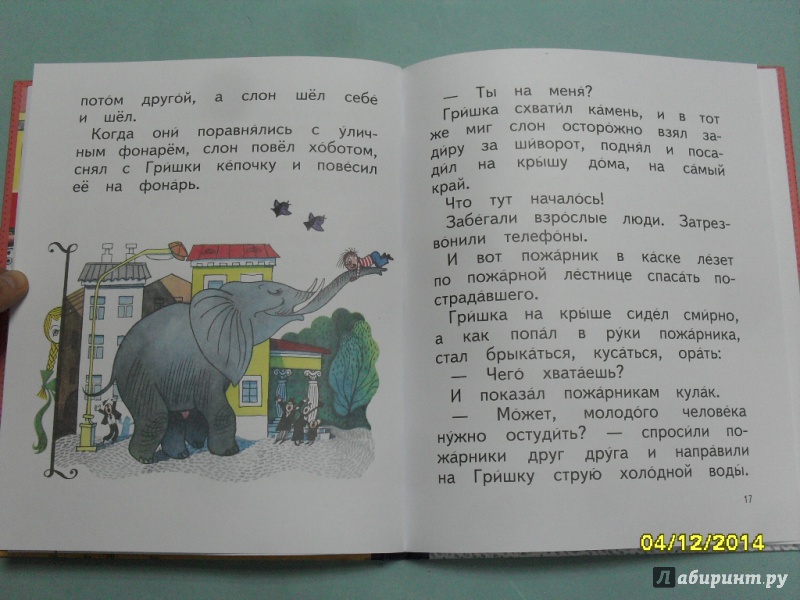 пото́м друго́й, а слон шёл себе́
и шёл.
Когда они́ поравня́лись с у́лич-
ным фонарём, слон повёл хо́ботом,
снял с Гри́шки ке́почку и пове́сил
её на фона́рь.
— Ты на меня́?
Гри́шка схвати́л ка́мень, и в тот
же миг слон осторо́жно взял за-
ди́ру за ши́ворот, поднял и поса-
ди́л на кры́шу до́ма, на са́мый
край.
Что тут начало́сь!
Забе́гали взро́слые люди. Затрез-
во́нили телефо́ны.
И вот пожа́рник в ка́ске ле́зет
по пожа́рной ле́стнице спаса́ть по-
страда́вшего.
Гри́шка на кры́ше сиде́л сми́рно,
а как попа́л в ру́ки пожа́рника,
стал брыка́ться, куса́ться, ора́ть:
— Чего́ хвата́ешь?
И показа́л пожа́рникам кула́к.
— Мо́жет, молодо́го челове́ка
ну́жно остуди́ть? — спроси́ли по-
жа́рники друг дру́га и напра́вили
на Гри́шку струю́ холо́дной воды́.
17
04/12/2014
Лабиринт.ру